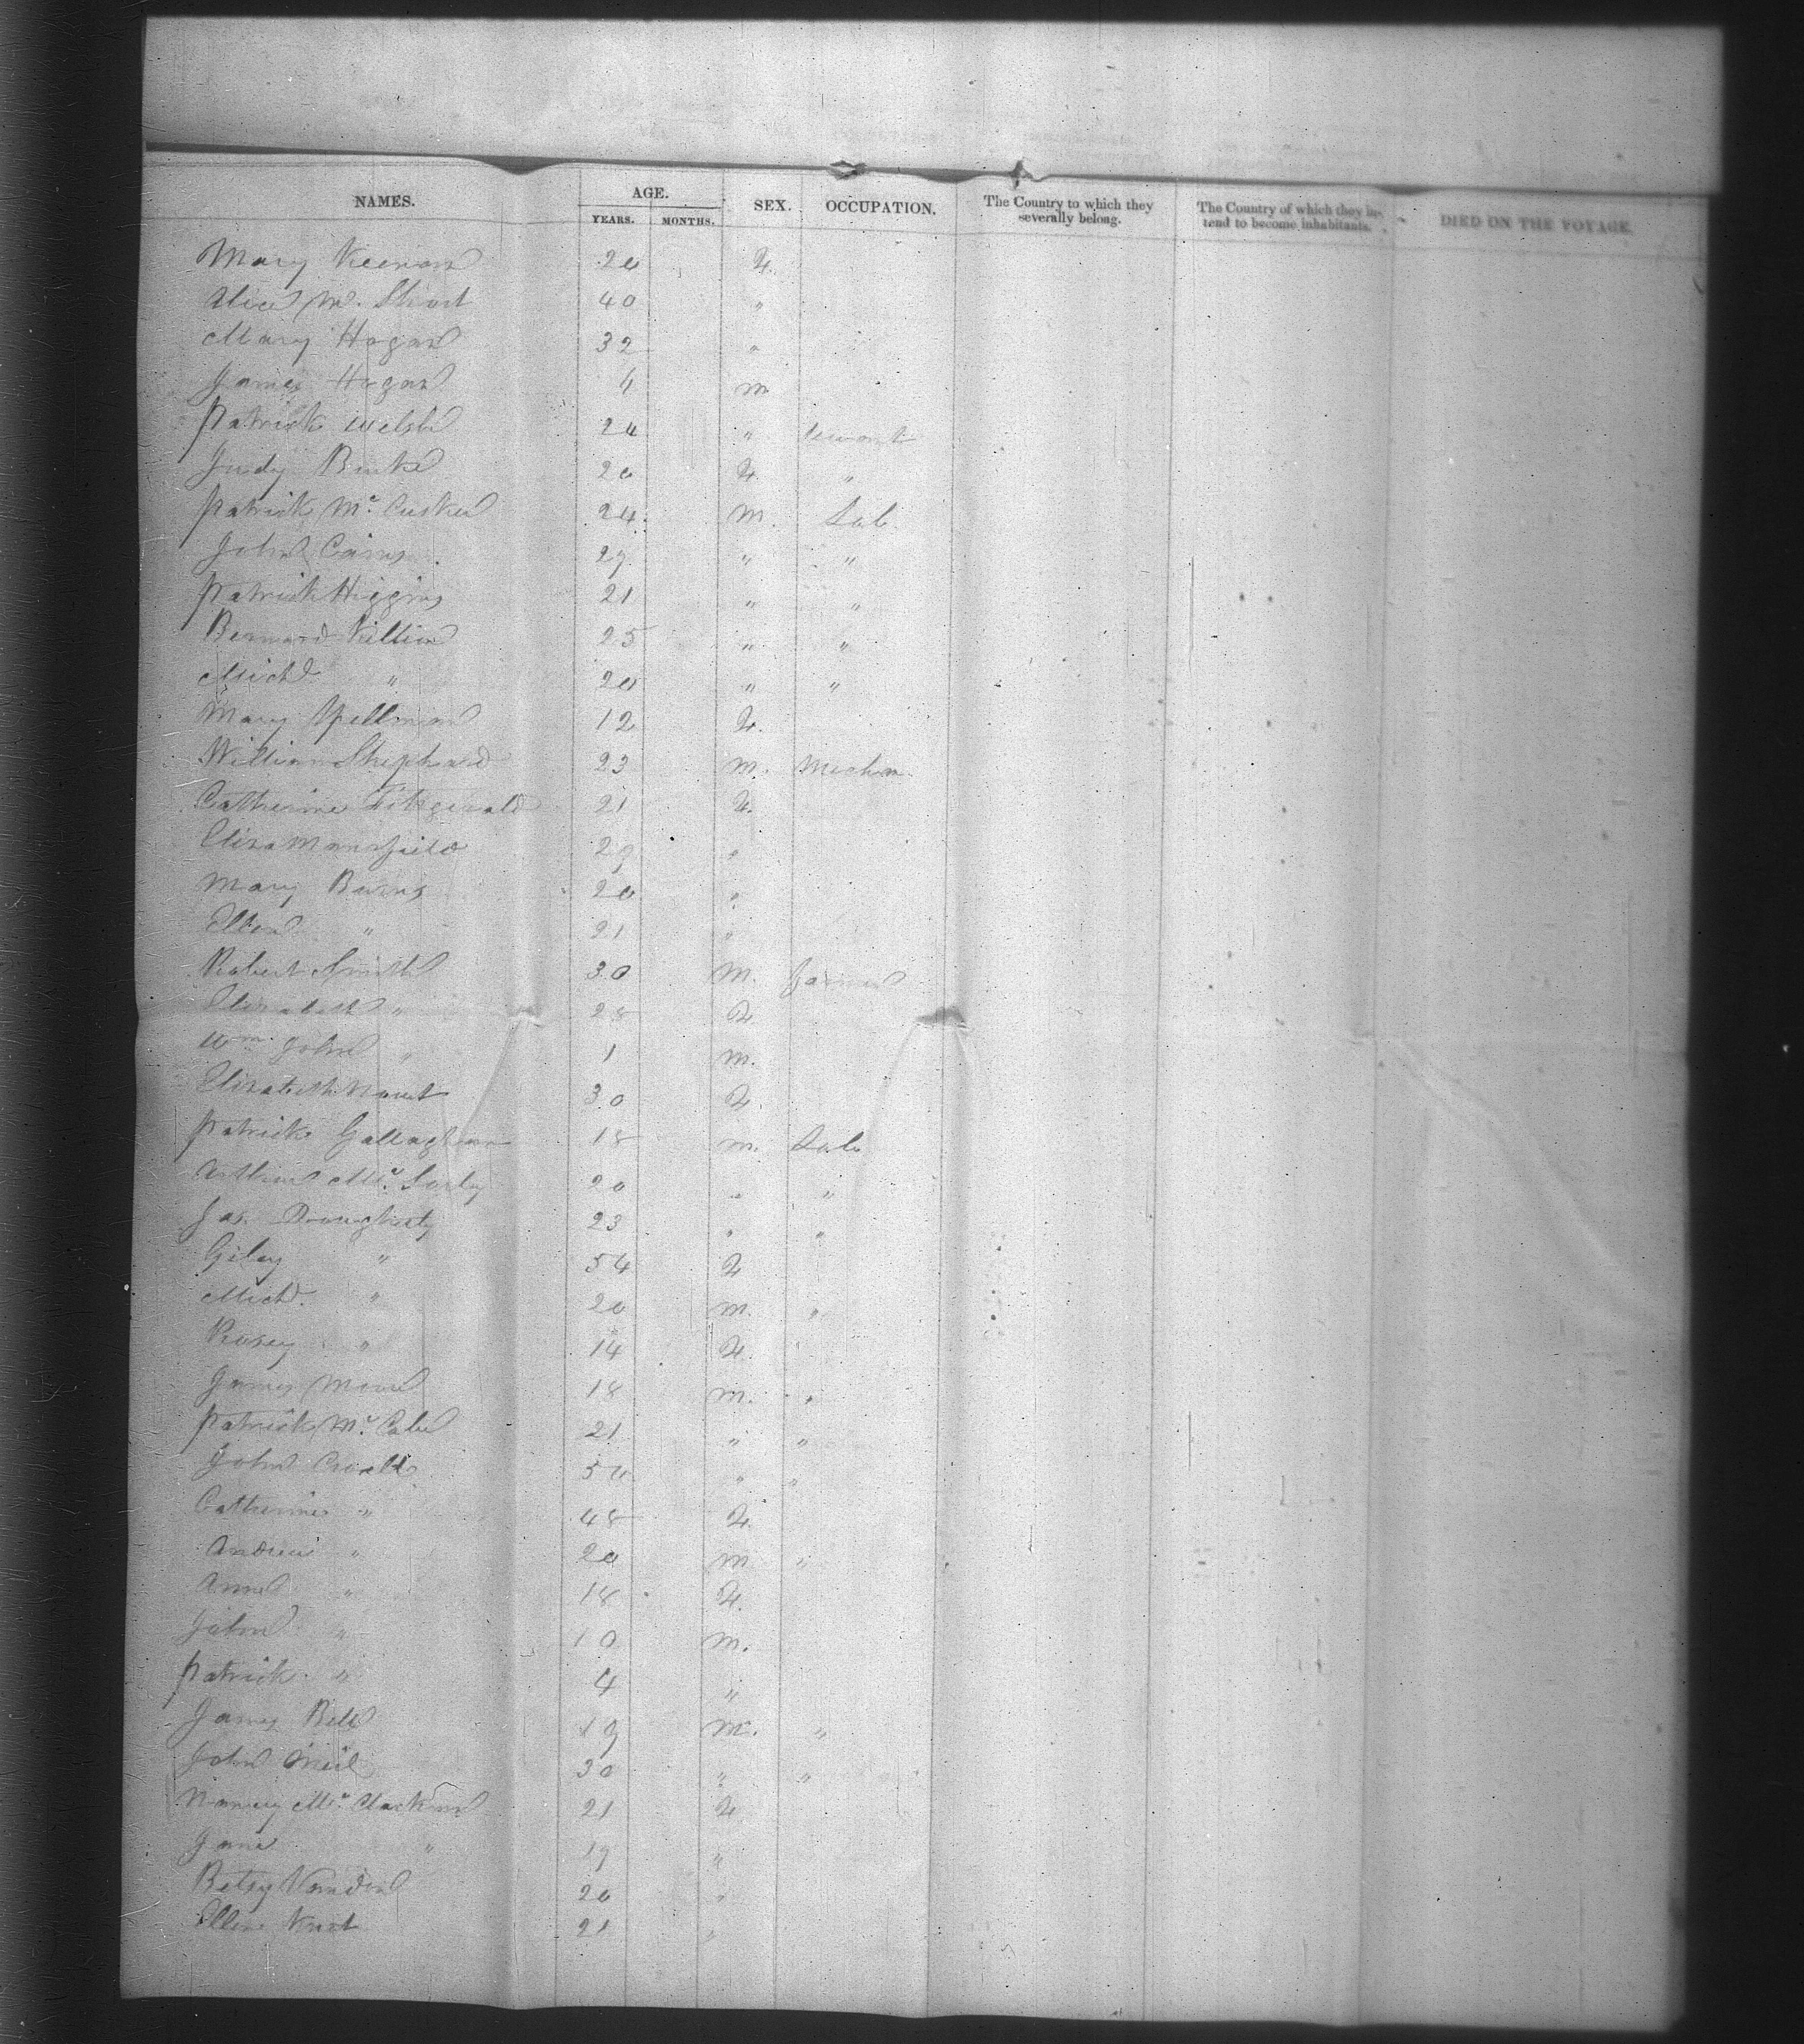 NAMES. AGE. SEX. OCCUPATION. The Country to which they severally belong. The Country of which they intend to become inhabitants. DIED ON THE VOYAGE.
YEARS. MONTHS.
Mary Keenan 20 F.
Alice M. Short 40 "
Mary Hogan 32 "
James Hogan 4 m
Patrick Welsh 24 " Servant
Judy Burke 20 F. "
Patrick Mc Cusker 24 M. Lab
John Cairns 29 " "
Patrick Higgins 21 " "
Bernard Killian 25 " "
Michl " 20 " "
Mary Spellman 12 F.
William Shephard 23 M. Mechn
Catherine Fitzgerald 21 F.
Eliza Mansfield 29 "
Mary Burns 20 "
Ellen " 21 "
Robert Smith 30 M. Farmer
Elizabeth " 28 F
Wm John " 1 M.
Elizabeth 30 F.
Patrick Gallagher 18 M. Lab
Arthur Mc Sorley 20 " "
Jas. Dougherty 23 " "
Giley " 54 F
Michl. " 20 M. "
Rosey " 14 F.
James 18 M. "
Patrick Mc Cabe 21 " "
John 50 " "
Catherine " 48 F.
Andrew " 20 M "
Anne " 18 F.
John " 10 M.
Patrick " 4 "
James Bell 19 M. "
John Neil 30 " "
Nancy Mc 21 F
Jane " 19 "
Betsy 20 "
Ellen 21 "